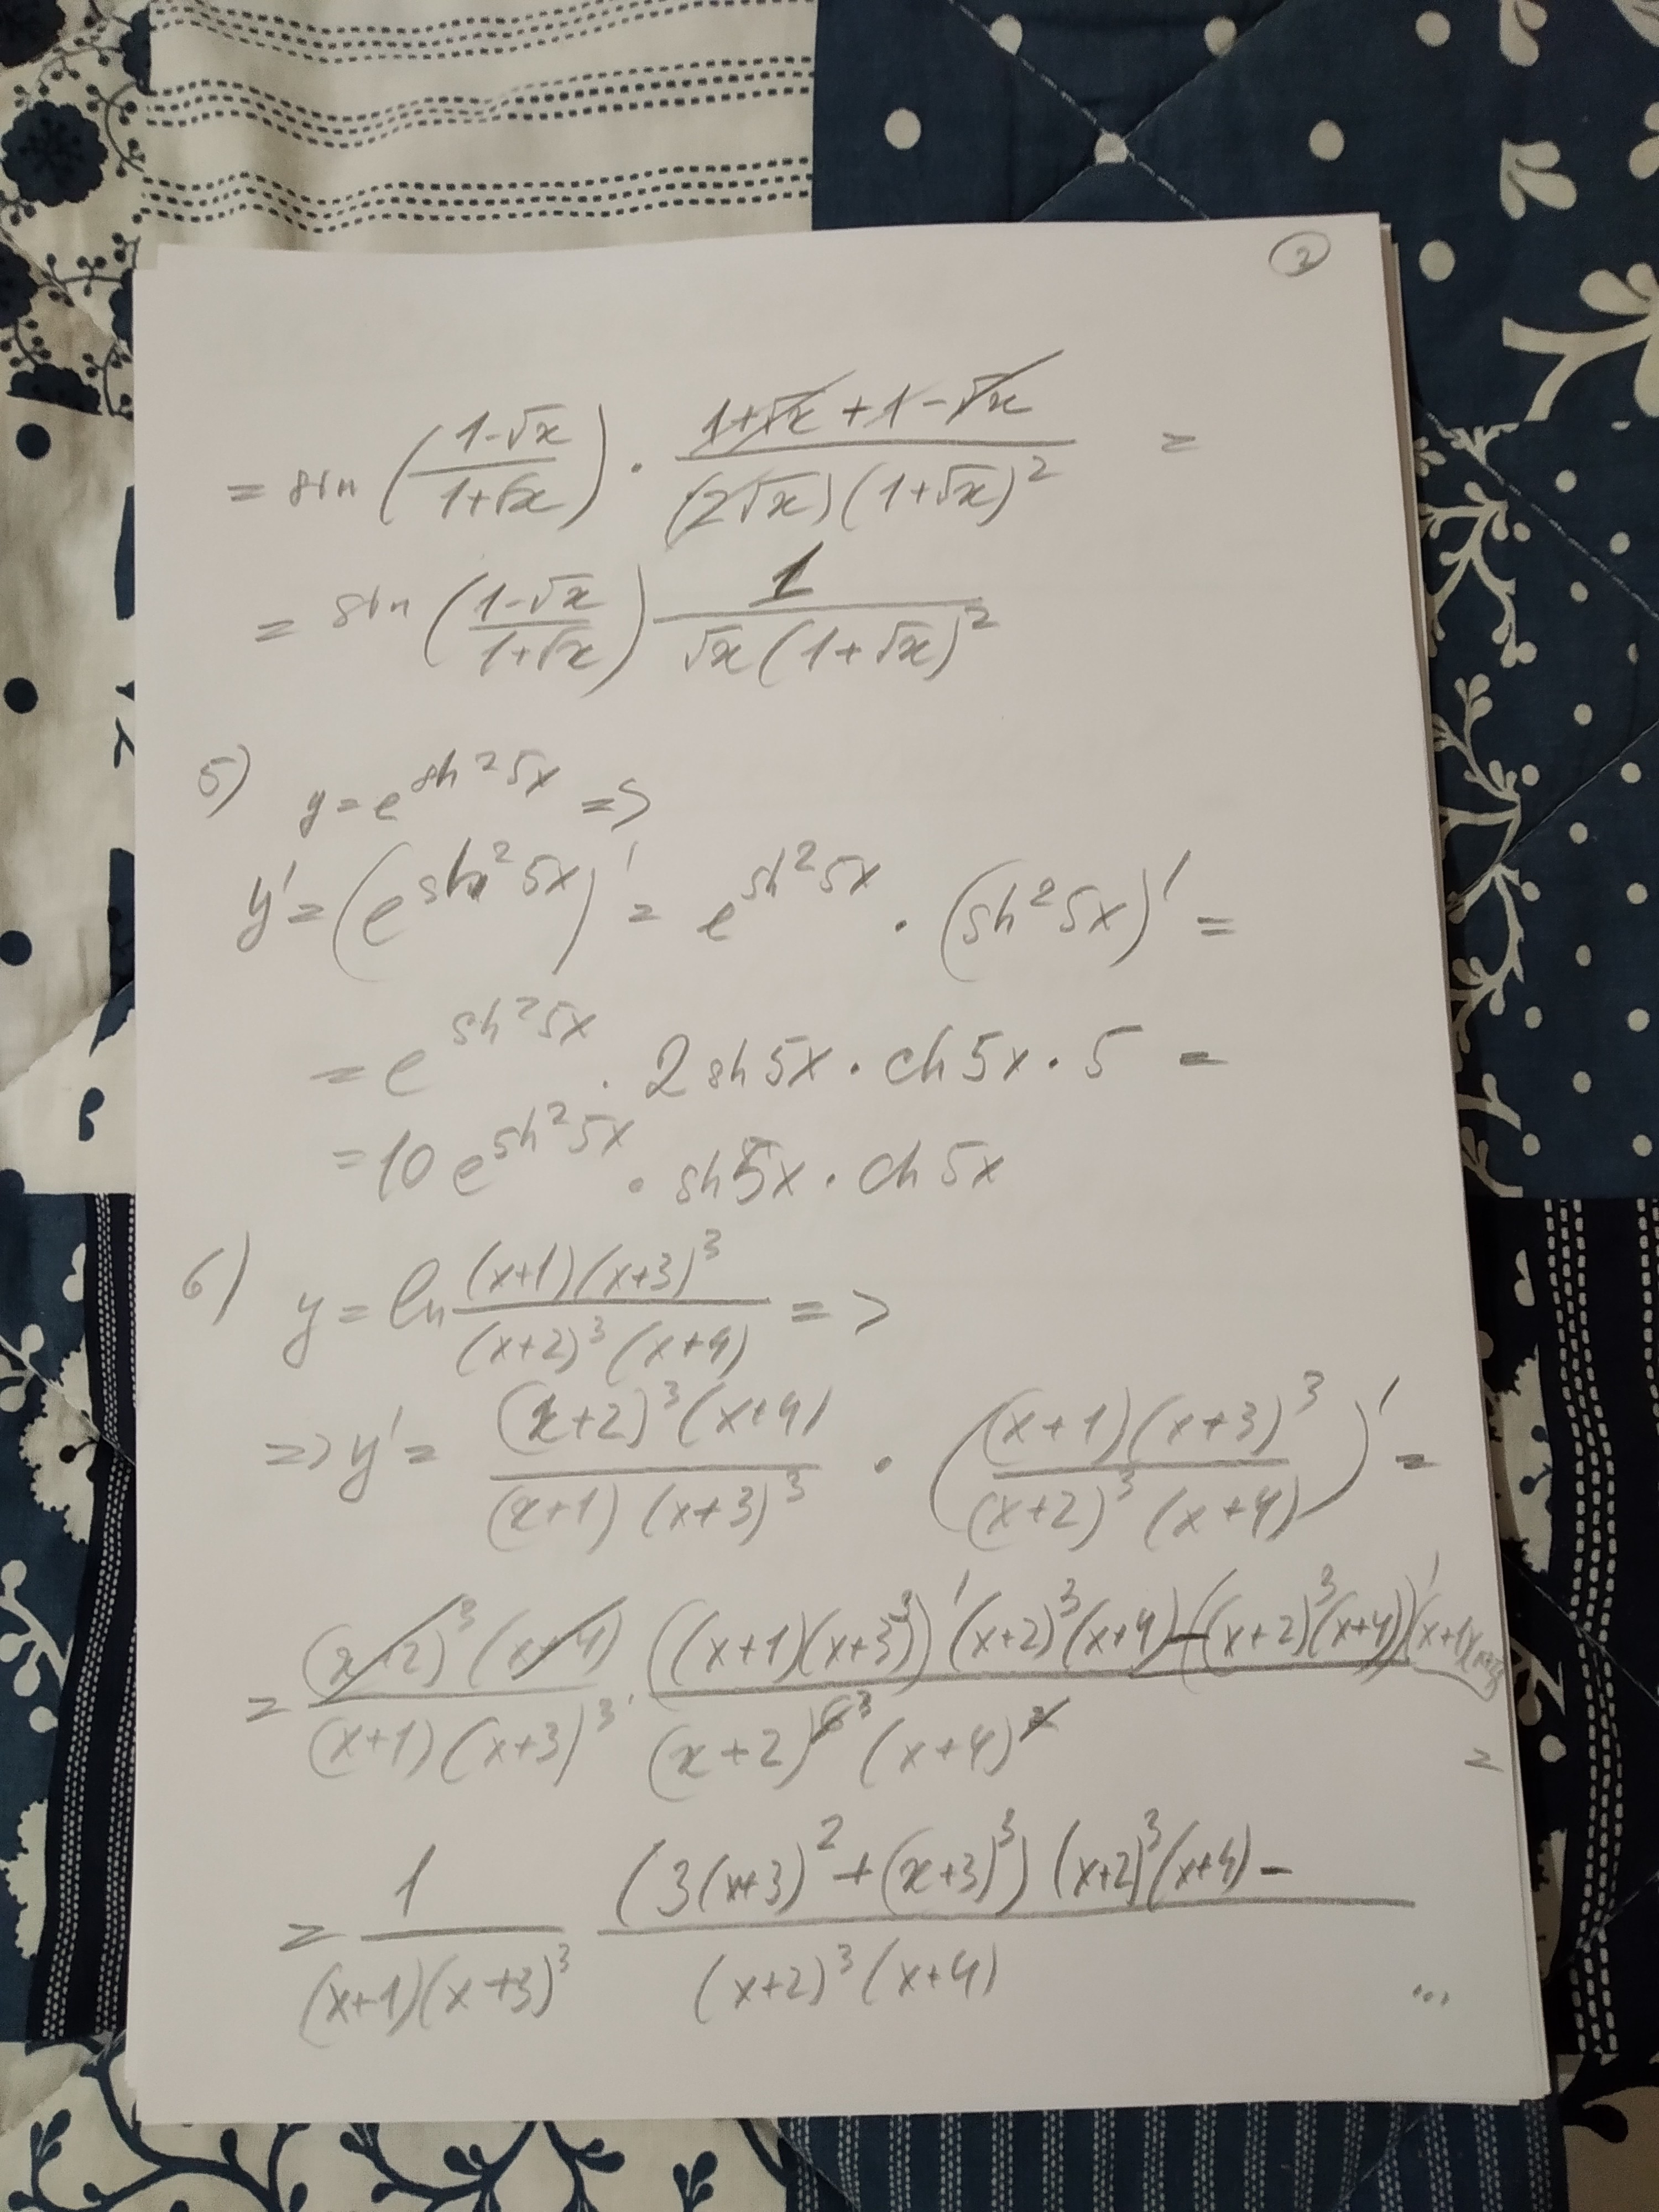 2
= sin ((1-√x)/(1+√x)) · (1+√x+1-√x)/((2√x)(1+√x)²) =
= sin ((1-√x)/(1+√x)) 1/(√x(1+√x)²)
5) y=e^(sh²5x) =>
y'=(e^(sh²5x))' = e^(sh²5x) · (sh²5x)' =
= e^(sh²5x) · 2sh5x · ch5x · 5 =
=10e^(sh²5x) · sh5x · ch5x
6) y = ln ((x+1)(x+3)³)/((x+2)³(x+4)) =>
=> y' = ((x+2)³(x+4))/((x+1)(x+3)³) · (((x+1)(x+3)³)/((x+2)³(x+4)))' =
= ((x+2)³(x+4))/((x+1)(x+3)³) · (((x+1)(x+3)³)'(x+2)³(x+4)-((x+2)³(x+4))'(x+1)(x+3)³)/((x+2)³(x+4)) =
= 1/((x+1)(x+3)³) ((3(x+3)²+(x+3)³)(x+2)³(x+4)-)/((x+2)³(x+4)) ...